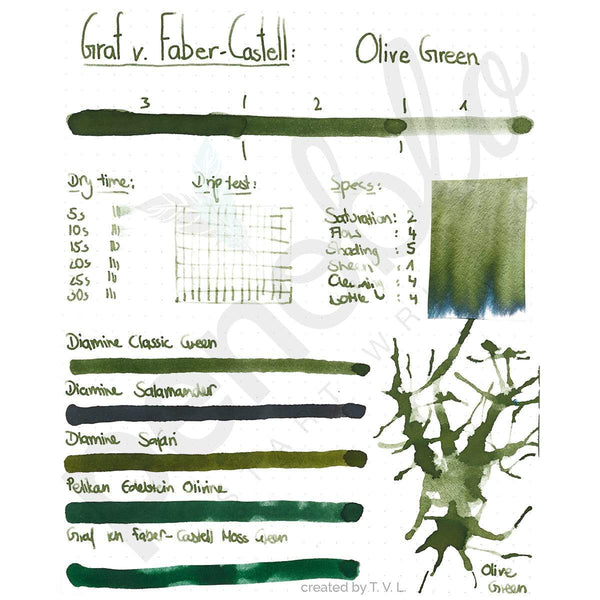 Graf v. Faber-Castell: Olive Green
3 1 2 1 1
Dry time: Drip test: Specs:
5s
10s
15s
20s
25s
30s
Saturation: 2
Flow : 4
Shading : 5
Sheen : 1
Cleaning : 4
Bottle : 4
Diamine Classic Green
Diamine Salamander
Diamine Safari
Pelikan Edelstein Olivine
Graf von Faber-Castell Moss Green
Olive
Green
created by T. V. L.